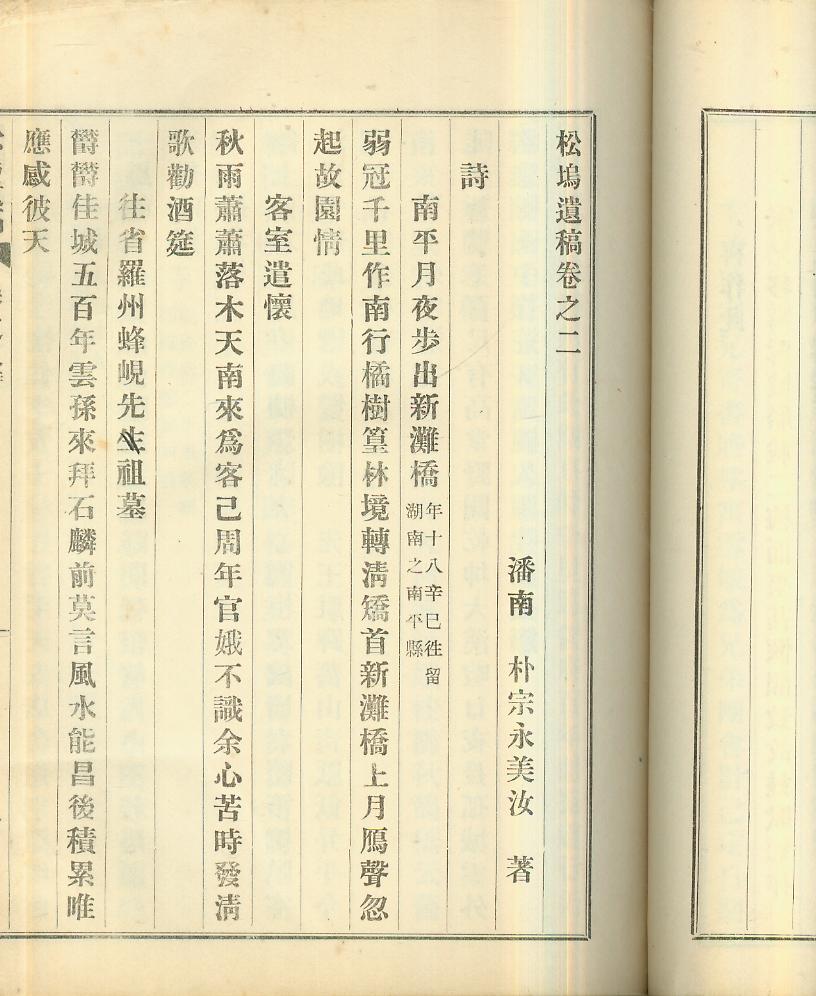 松塢遺稿卷之二
潘南 朴宗永美汝 著
詩
南平月夜步出新灘橋 年十八辛巳徃留湖南之南平縣
弱冠千里作南行橘樹篁林境轉淸矯首新灘橋上月鴈聲忽
起故園情
客室遣懷
秋雨蕭蕭落木天南來爲客已周年官娥不識余心苦時發淸
歌勸酒筵
往省羅州蜂峴先生祖墓
欝欝佳城五百年雲孫來拜石麟前莫言風水能昌後積累唯
應感彼天